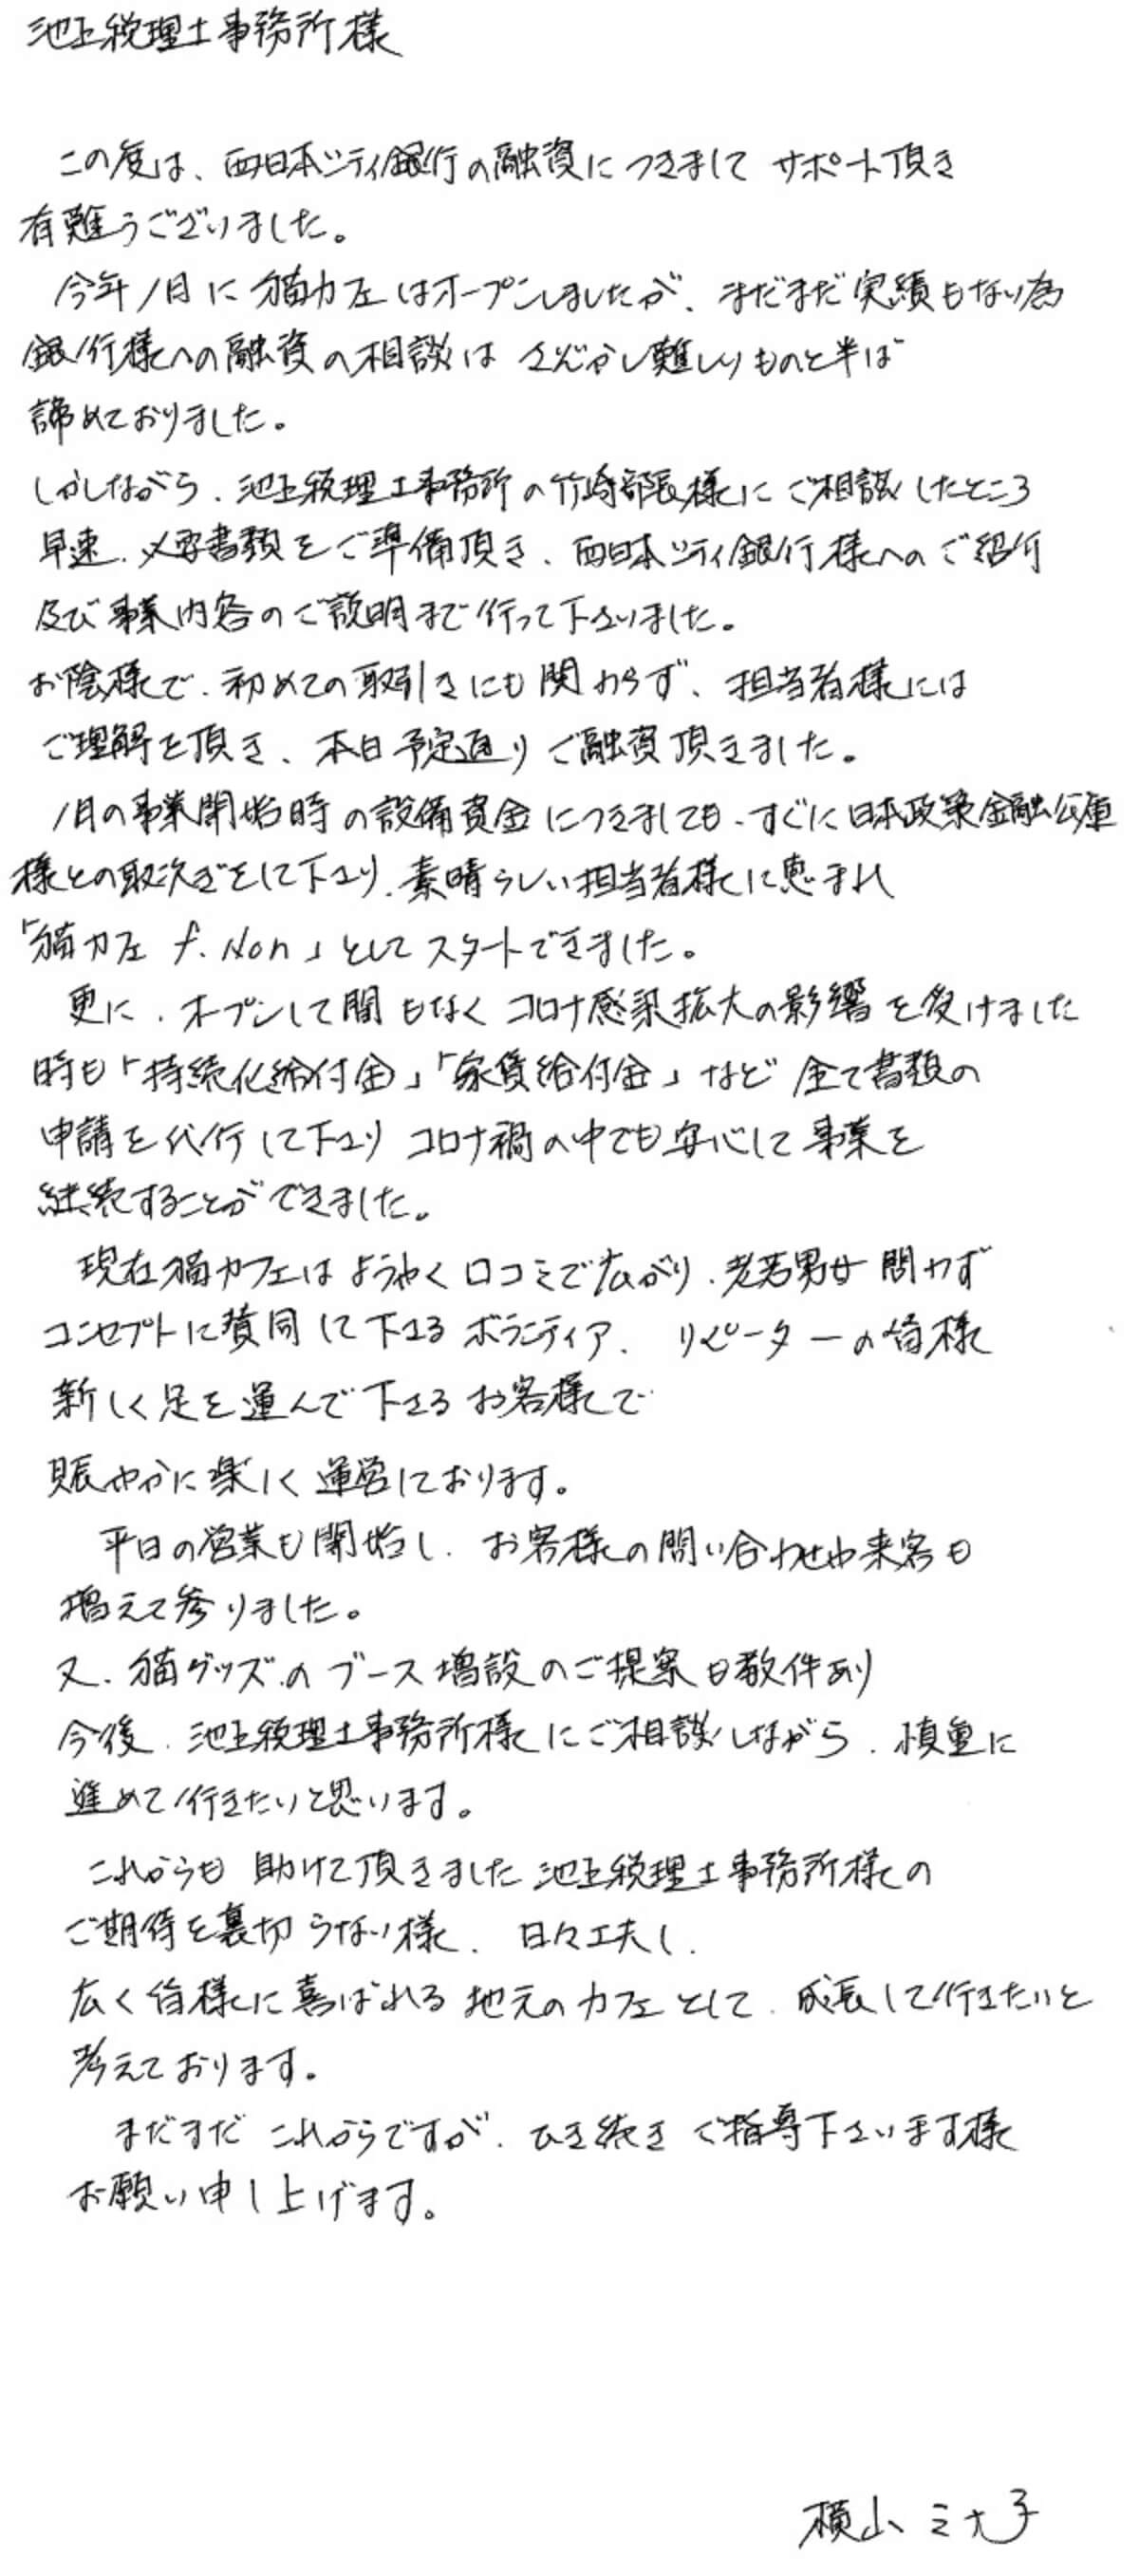 池上税理士事務所様
この度は、西日本シティ銀行の融資につきまして サポート頂き
有難うございました。
今年1月に 猫カフェはオープンしましたが、まだまだ実績もない為
銀行様への融資の相談は さぞかし難しいものと半ば
諦めておりました。
しかしながら、池上税理士事務所の竹崎部長様にご相談したところ
早速、必要書類をご準備頂き、西日本シティ銀行様へのご紹介
及び事業内容のご説明まで行って下さいました。
お陰様で、初めての取引きにも関わらず、担当者様には
ご理解を頂き、本日予定通りご融資頂きました。
1月の事業開始時の設備資金につきましても、すぐに日本政策金融公庫
様との取次ぎをして下さり、素晴らしい担当者様に恵まれ
「猫カフェ f.Non」としてスタートできました。
更に、オープンして間もなくコロナ感染拡大の影響を受けました
時も「持続化給付金」「家賃給付金」など 全て書類の
申請を代行して下さり コロナ禍の中でも安心して事業を
継続することができました。
現在猫カフェはようやく口コミで広がり、老若男女問わず
コンセプトに賛同して下さるボランティア、リピーターの皆様
新しく足を運んで下さるお客様で
賑やかに楽しく運営しております。
平日の営業も開始し、お客様の問い合わせや来客も
増えて参りました。
又、猫グッズのブース増設のご提案も数件あり
今後、池上税理士事務所様にご相談しながら、慎重に
進めて行きたいと思います。
これからも 助けて頂きました池上税理士事務所様の
ご期待を裏切らない様、日々工夫し、
広く皆様に喜ばれる地元のカフェとして、成長して行きたいと
考えております。
まだまだ これからですが、ひき続き ご指導下さいます様
お願い申し上げます。
横山 ミナ子